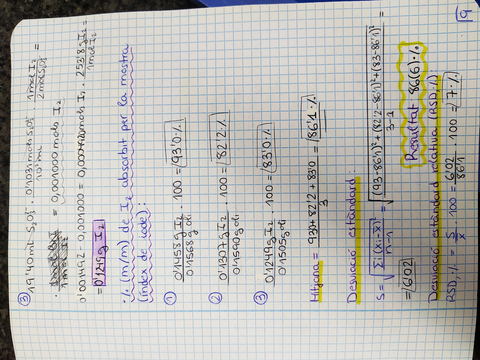 ③ 19'40 mL S₂O₃²⁻ · 0'1031 mols S₂O₃²⁻ / 10³ mL · 1 mol I₂ / 2 mol S₂O₃²⁻ =
= 0'001000 mols I₂
0'001492 - 0'001000 = 0'000492 mols I₂ · 253'8 g I₂ / 1 mol I₂ =
= 0'1249 g I₂
% (m/m) de I₂ absorbit per la mostra
(índex de iode):
① 0'1458 g I₂ / 0'1568 g oli · 100 = 93'0 %
② 0'1307 g I₂ / 0'1590 g oli · 100 = 82'2 %
③ 0'1249 g I₂ / 0'1505 g oli · 100 = 83'0 %
Mitjana = 93'0 + 82'2 + 83'0 / 3 = 86'1 %
Desviació estàndard:
S = √ Σi (xi - x̄)² / n-1 = √ (93-86'1)² + (82'2-86'1)² + (83-86'1)² / 3-1 =
= 6'02
Resultat 86(6) %
Desviació estàndard relativa (RSD, %)
RSD, % = S / x̄ · 100 = 6'02 / 86'1 · 100 = 7 %
9